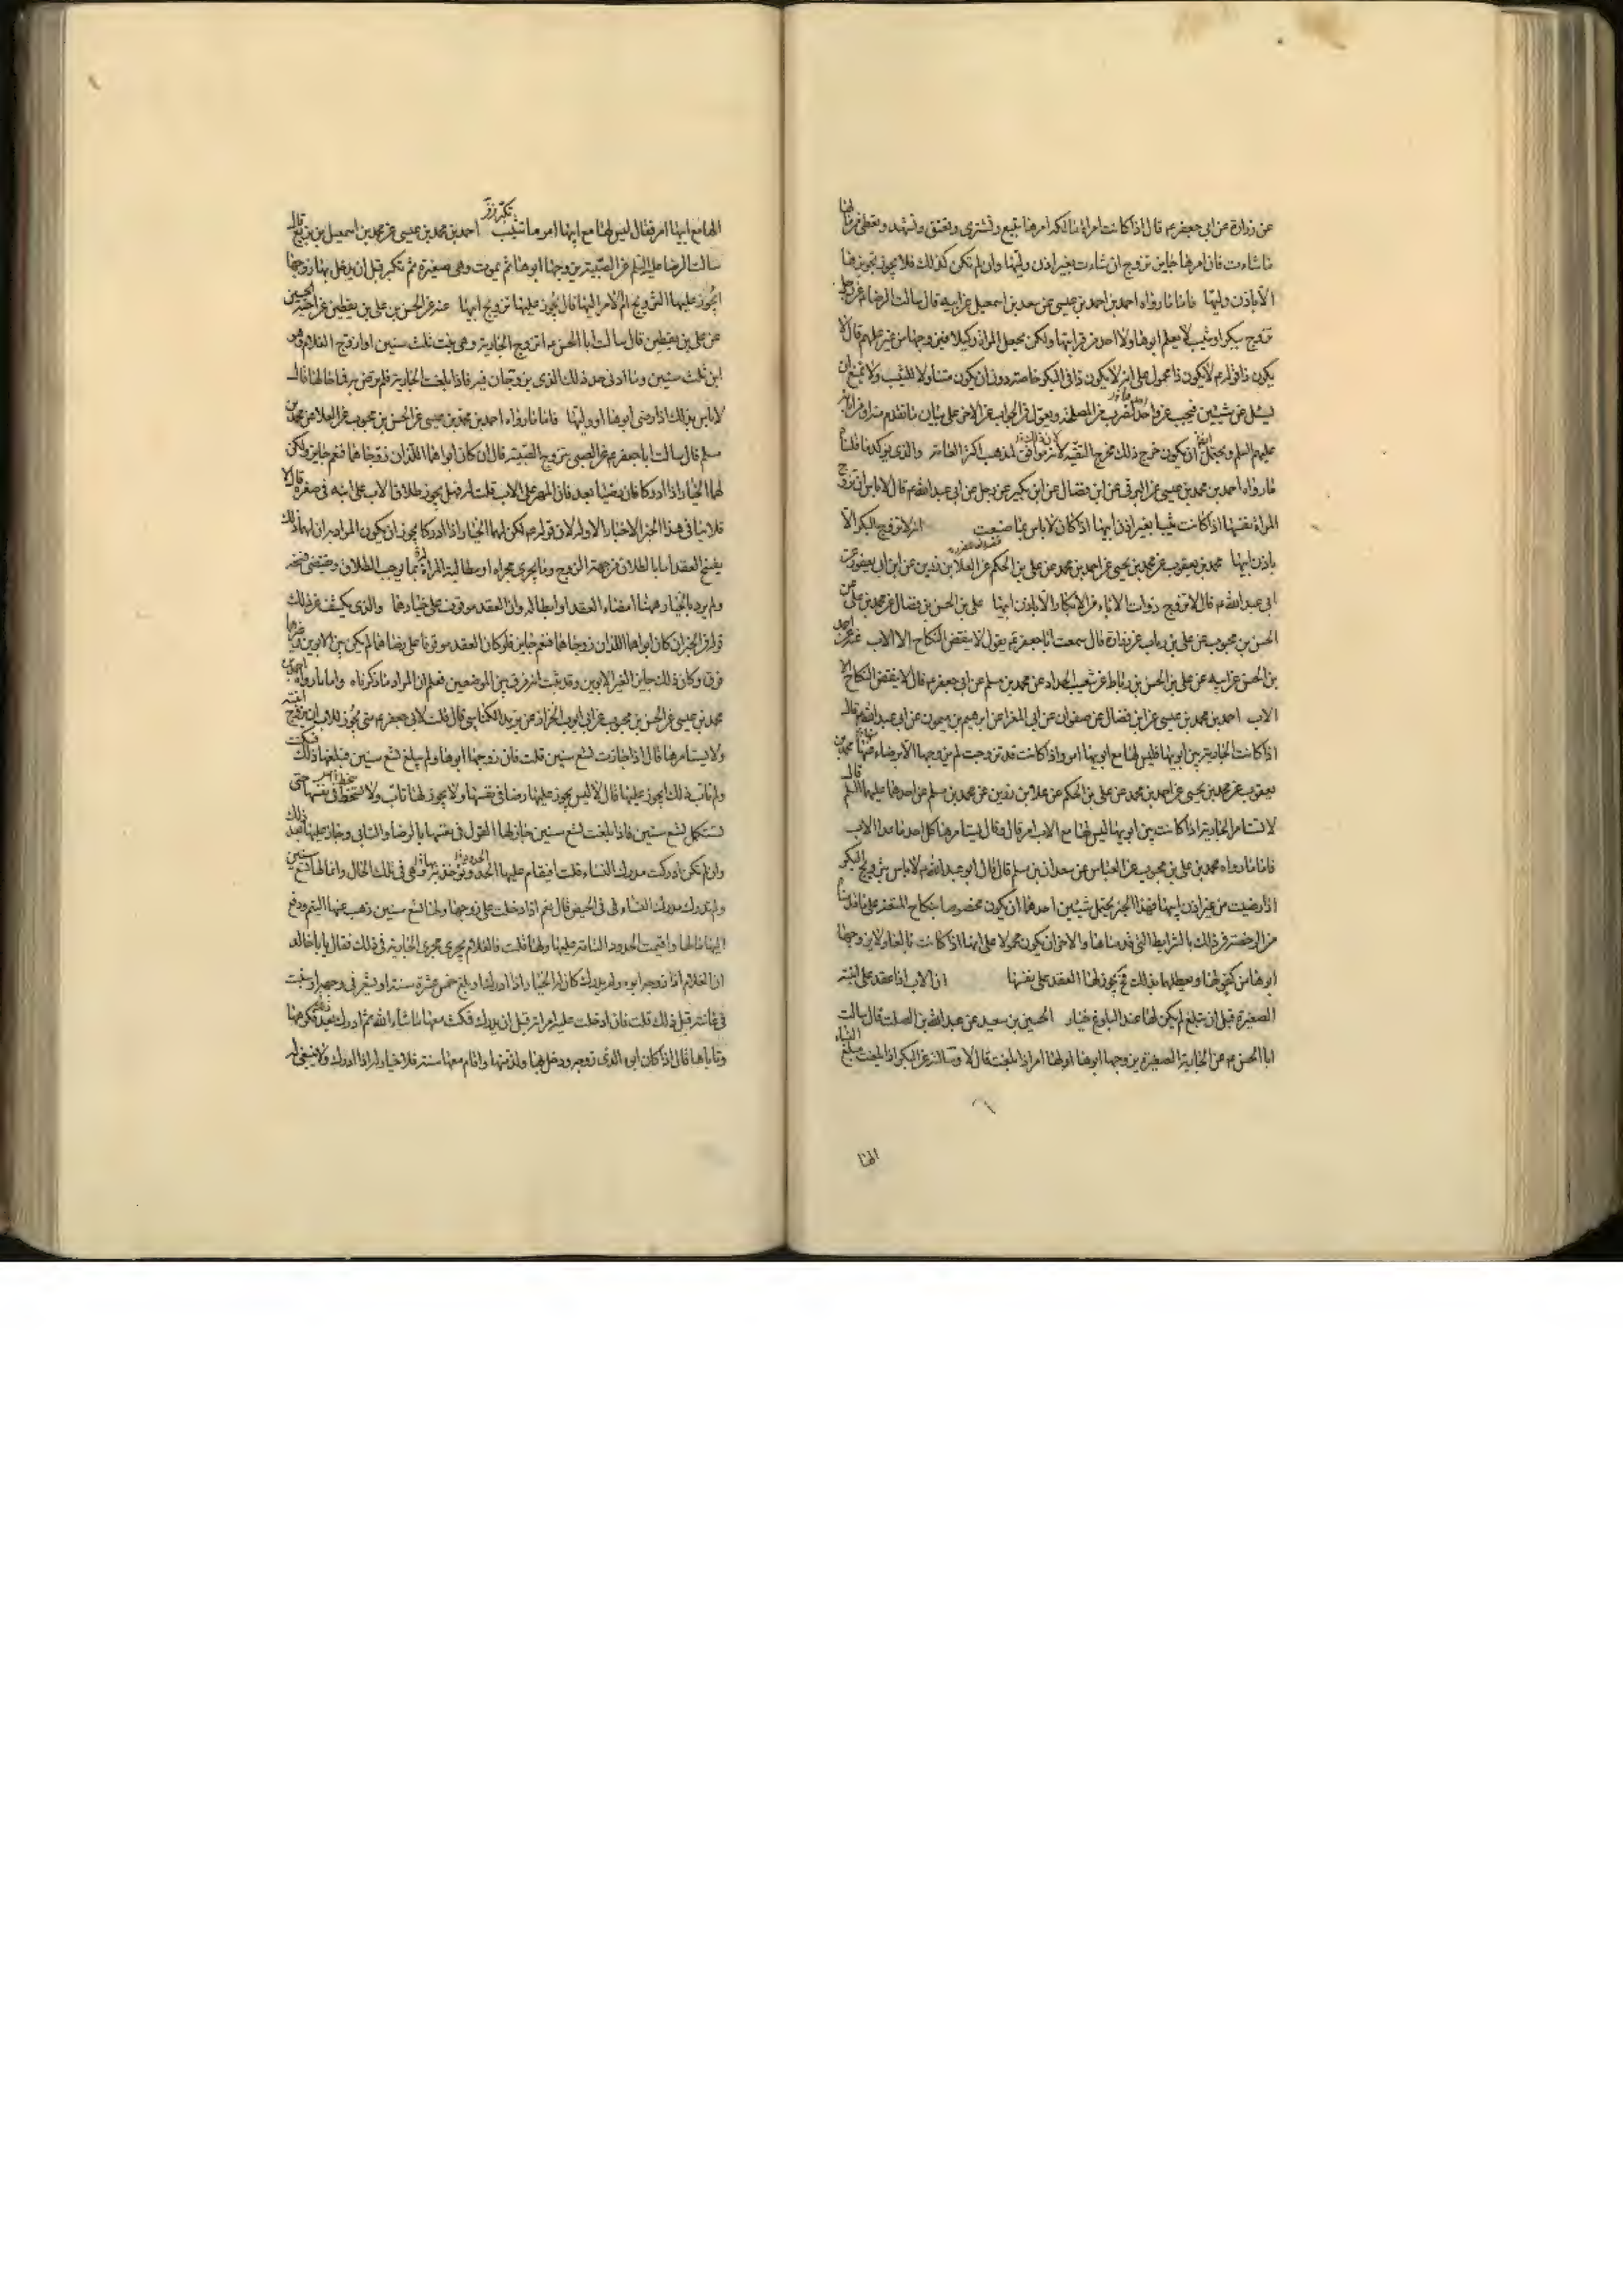 عن زرارة عن ابي جعفر ع قال اذا كانت امراة مالكة امرها تبيع وتشتري وتعتق وتشهد وتعطي من مالها
ما شاءت فان امرها جايز تزوج ان شاءت بغير اذن وليها وان لم تكن كذلك فلا يجوز تزويجها
الا باذن وليها فاما ما رواه احمد بن احمد بن عيسى عن سعد بن اسمعيل عن ابيه قال سالت الرضا ع عن رجل
تزوج ببكر او ثيب لا يعلم ابوها ولا احد من قراباتها ولكن يجعل المراة وكيلا فيزوجها من غير علمهم قال لا
يكون ذا قوله ع لا يكون ذا محمول على انه لا يكون ذا في البكر خاصة دون ان يكون متناولا للثيب ولا يمتنع ان
يسئل عن شيئين فيجيب عن واحد لضرب من المصلحة ويعول في الجواب عن الاخر على بيان ما تقدم منه او من ابائه
عليهم السلم ويحتمل ايضا ان يكون خرج ذلك مخرج التقية لانه موافق لمذهب اكثر العامة والذي يؤكد ما قلناه
ما رواه احمد بن محمد بن عيسى عن البرقي عن ابن فضال عن ابن بكير عن رجل عن ابي عبد الله ع قال لا باس ان تزوج
المراة نفسها اذا كانت ثيبا بغير اذن ابيها اذا كان لا باس بما صنعت انه لا تزوج البكر الا
باذن ابيها محمد بن يعقوب عن محمد بن يحيى عن احمد بن محمد عن علي بن الحكم عن العلا بن رزين عن ابن ابي يعفور عن
ابي عبد الله ع قال لا تزوج ذوات الاباء من الابكار الا باذن ابيها علي بن الحسن بن فضال عن محمد بن علي عن
الحسن بن محبوب عن علي بن رياب عن زرارة قال سمعت ابا جعفر ع يقول لا ينقض النكاح الا الاب عنه عن احمد
بن الحسن عن ابيه عن علي بن الحسن بن رباط عن شعيب الحداد عن محمد بن مسلم عن ابي جعفر ع قال لا ينقض النكاح الا
الاب احمد بن محمد بن عيسى عن ابن فضال عن صفوان عن ابي المغرا عن ابرهيم بن ميمون عن ابي عبد الله ع قال
اذا كانت الجارية بين ابويها فليس لها مع ابويها امر واذا كانت قد تزوجت لم يزوجها الا برضاء منها محمد بن
يعقوب عن محمد بن يحيى عن احمد بن محمد عن علي بن الحكم عن علا بن رزين عن محمد بن مسلم عن احدهما عليهما السلم قال
لا تستامر الجارية اذا كانت بين ابويها ليس لها مع الاب امر قال وقال يستامرها كل احد ما عدا الاب
فاما ما رواه محمد بن علي بن محبوب عن العباس عن سعدان بن مسلم قال قال ابو عبد الله ع لا باس بتزويج البكر
اذا رضيت من غير اذن ابيها فهذا الخبر يحتمل شيئين احدهما ان يكون مخصوصا بنكاح المتعة على ما قدمناه
من الرخصة في ذلك بالشرايط التي قدمناها والاخر ان يكون محمولا على انها اذا كانت بالغا ولا يزوجها
ابوها من كفو لها ويعطلها بذلك فح يجوز لها العقد على نفسها ان الاب اذا عقد على ابنته
الصغيرة قبل ان تبلغ لم يكن لها عند البلوغ خيار الحسين بن سعيد عن عبد الله بن الصلت قال سالت
ابا الحسن ع عن الجارية الصغيرة يزوجها ابوها اولها امر اذا بلغت قال لا وسالته عن البكر اذا بلغت مبلغ النساء
الها
الها مع ابيها امر فقال ليس لها مع ابيها امر ما تثيب احمد بن محمد بن عيسى عن محمد بن اسمعيل بن بزيع قال
سالت الرضا عليه السلم عن الصبية يزوجها ابوها ثم يموت وهي صغيرة ثم تكبر قبل ان يدخل بها زوجها
ايجوز عليها التزويج ام الامر اليها قال يجوز عليها تزويج ابيها عنه عن الحسن بن علي بن يقطين عن اخيه الحسين
عن علي بن يقطين قال سالت ابا الحسن ع اتزوج الجارية وهي بنت ثلث سنين او ازوج الغلام وهو
ابن ثلث سنين وما ادنى حد ذلك الذي يزوجان فيه فاذا بلغت الجارية فلم ترض به فما حالها قال
لا باس بذلك اذا رضي ابوها او وليها فاما ما رواه احمد بن محمد بن عيسى عن الحسن بن محبوب عن العلا عن محمد بن
مسلم قال سالت ابا جعفر ع عن الصبي يتزوج الصبية قال ان كان ابواهما اللذان زوجاهما فنعم جايز ولكن
لهما الخيار اذا ادركا فان رضيا بعد فان المهر على الاب قلت له فهل يجوز طلاق الاب على ابنه في صغره قال لا
فلا ينافي هذا الخبر الاخبار الاولة لان قوله ع لكن لهما الخيار اذا ادركا يجوز ان يكون المراد به ان لهما ذلك
بفسخ العقد اما بالطلاق من جهة الزوج وما يجري مجراه او مطالبة المراة له بما يوجب الطلاق ويقتضي فسخه
ولم يرد بالخيار ههنا امضاء العقد او ابطاله وان العقد موقوف على خيارهما والذي يكشف عن ذلك
قوله في الخبر ان كان ابواهما اللذان زوجاهما فنعم جايز فلو كان العقد موقوفا على رضاهما لم يكن بين الابوين وغيرهما
فرق وكان ذلك جايز لغير الابوين وقد ثبت انه فرق بين الموضعين فعلم ان المراد ما ذكرناه واما ما رواه احمد بن
محمد بن عيسى عن الحسن بن محبوب عن ابي ايوب الخزاز عن يزيد الكناسي قال قلت لابي جعفر ع متى يجوز للاب ان يزوج ابنته
ولا يستامرها قال اذا جازت تسع سنين قلت فان زوجها ابوها ولم يبلغ تسع سنين فبلغها ذلك فسكتت
ولم تاب ذلك ايجوز عليها قال لا ليس يجوز عليها رضا في نفسها ولا يجوز لها تاب ولا سخط في نفسها حتى
تستكمل تسع سنين فاذا بلغت تسع سنين جاز لها القول في نفسها بالرضا والتابي وجاز عليها بعد ذلك
وان لم تكن ادركت مدرك النساء قلت افيقام عليها الحدود وتؤخذ بها وهي في تلك الحال وانما لها تسع سنين
ولم تدرك مدرك النساء في الحيض قال نعم اذا دخلت على زوجها ولها تسع سنين ذهب عنها اليتم ودفع
اليها مالها واقيمت الحدود التامة عليها ولها قلت فالغلام يجري مجرى الجارية في ذلك فقال يا با خالد
ان الغلام اذا زوجه ابوه ولم يدرك كان له الخيار اذا ادرك او بلغ خمس عشرة سنة او يشعر في وجهه او ينبت
في عانته قبل ذلك قلت فان ادخلت عليه امراته قبل ان يدرك فمكث معها ما شاء الله ثم ادرك بعد فكرهها
وتاباها قال اذا كان ابوه الذي زوجه ودخل بها ولذ منها واقام معها سنة فلا خيار له اذا ادرك ولا ينبغي له